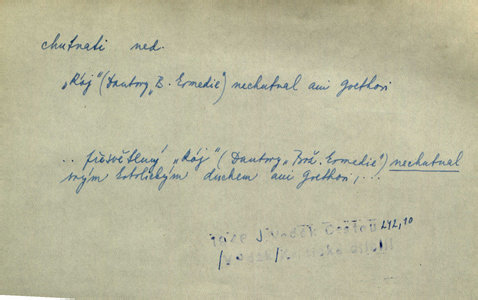 chutnati ned.
„Ráj" (Dantovy „B. Komedie") nechutnal ani Goethovi
.. přesvětlený „Ráj" (Dantovy „Bož. Komedie") nechutnal
svým katolickým duchem ani Goethovi, ...
242,10